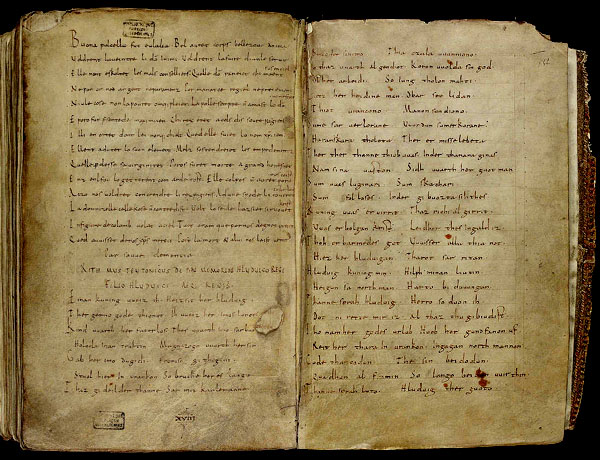 Buona pulcella fut eulalia. Bel auret corps bellezour anima
Voldrent la ueintre li deo inimi. Voldrent la faire diaule seruir
Elle non eskoltet les mals conselliers. Quelle deo raneiet chi maent sus en ciel
Ne por or ned argent ne paramenz. Por manatce regiel ne preiement
Niule cose non la pouret omque pleier. La polle sempre non amast lo deo menestier
E poro fut presentede maximiien. Chi rex eret a cels dis soure pagiens
Il li enortet dont lei nonque chielt. Qued elle fuiet lo nom xpiien
Ellent adunet lo suon element. Melz sostendreiet les empedementz
Quelle perdesse sa uirginitet. Poros furet morte a grand honestet
Enz enl fou la getterent com arde tost. Elle colpes non auret poro nos coist
A czo nos uoldret concreidre li rex pagiens. Ad une spede li roueret tolir lo chieef
La domnizelle celle kose non contredist. Volt lo seule lazsier si ruouet krist
In figure de colomb uolat a ciel. Tuit oram que por nos degnet preier
Qued auuisset de nos xps mercit. Post la mort et a lui nos laist uenir
Par souue clementia
RITHMUS TEUTONICUS DE PIAE MEMORIAE HLUDUICO REGE
FILIO HLUDUICI AEQ REGIS
Einan kuning uueiz ih. Heizsit her hluduig
Ther gerno gode thionot. Ih uueiz her imos lonot
Kind uuarth her faterlos. Thes uuarth imo sar buoz
Holoda inan truhtin. Magaczogo uuarth her sin
Gab her imo dugidi. Fronisc githigini
Stual hier in urankon. So bruche her es lango
Thaz gideilder thanne. Sar mit karlemanne
xviii
Bruoder sinemo. Thia czala uuunniono
So thaz uuarth al gendiot. Koron uuolda sin god
Ob her arbeidi. So iung tholon mahti
Lietz her heidine man. Obar seo lidan
Thiot urancono. Manon sundiono
Sume sar uerlorane. Uuurdun sumerkorane
Haranskara tholota. Ther er misselebeta
Ther ther thanne thiob uuas. Inder thanana ginas
Nam sina uaston. Sidh uuarth her guot man
Sum uuas luginari. Sum skachari
Sum fol loses. Inder gibuozta sih thes
Kuning uuas eruirrit. Thaz richi al girrit
Uuas erbolgan krist. Leidhor thes ingald iz
Thoh erbarmedes got. Uuisser alla thia not
Hiez her hluduigan. Tharot sar ritan
Hluduig kuning min. Hilph minan liutin
Heigun sa northman. Harto biduuungan
Thanne sprah hluduig. Herro so duon ih
Dot ni rette mir iz. Al thaz thu gibiudist
Tho nam her godes urlub. Huob her gundfanon uf
Reit her thara in urankon. Ingagan northmannon
Gode thancodun. The sin beidodun
Quadhun al fromin. So lango beidon uuir thin
Thanne sprah luto. Hluduig ther guoto